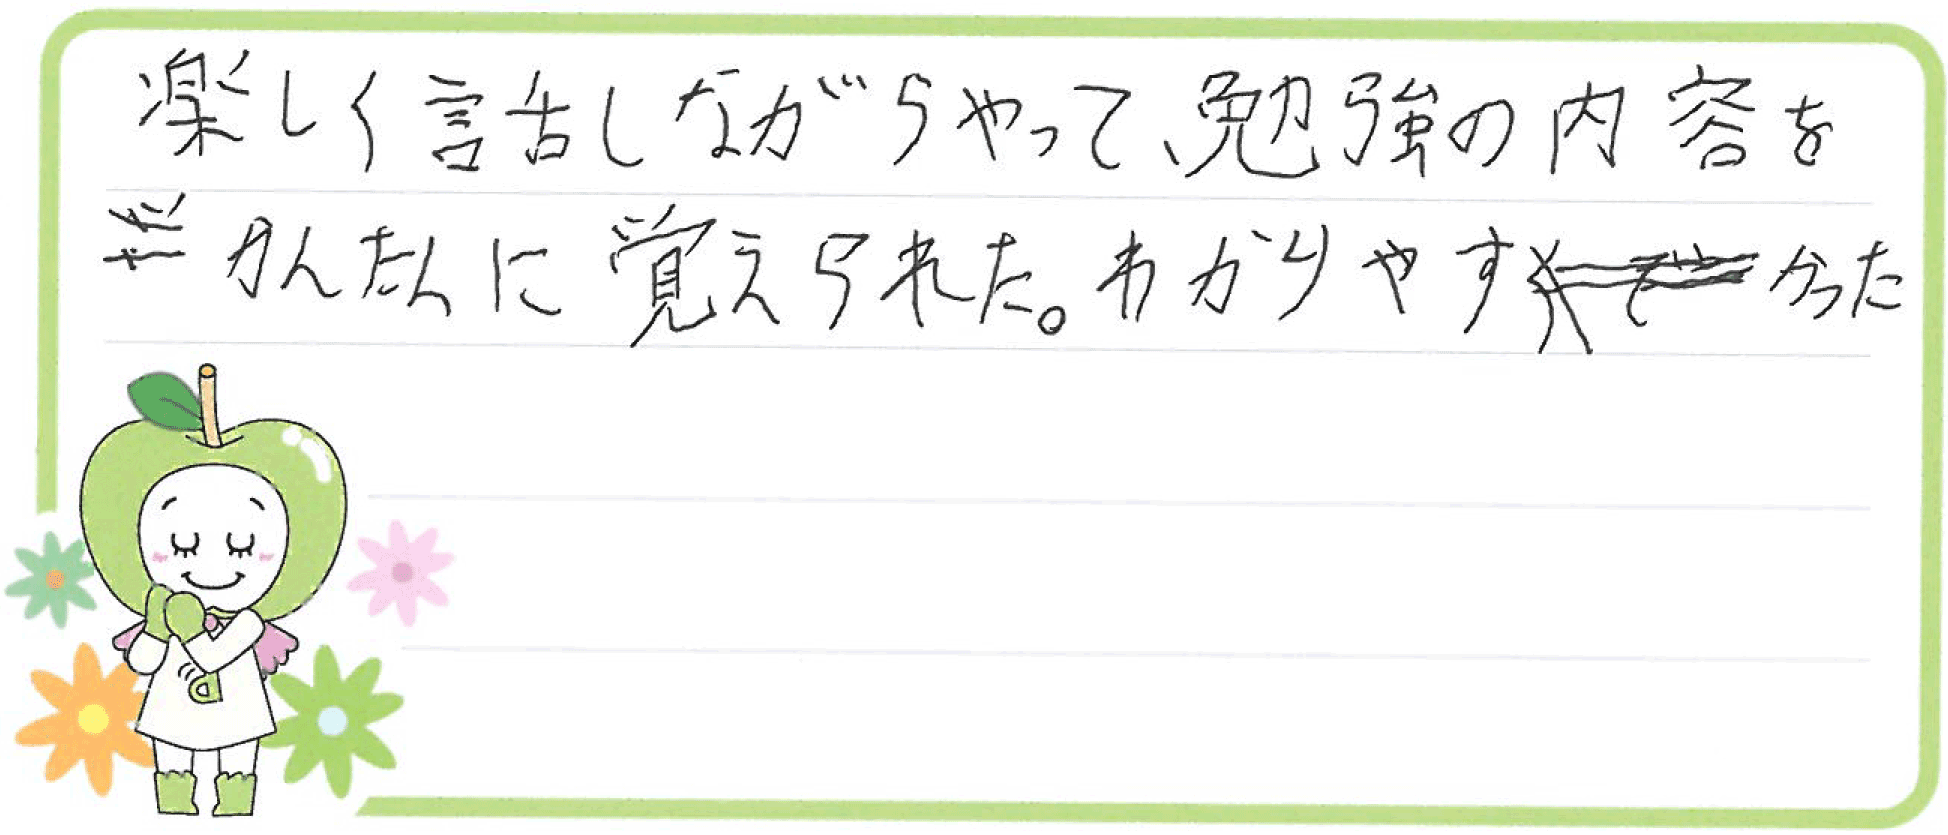 楽しく話しながらやって、勉強の内容を
かんたんに覚えられた。わかりやすかった